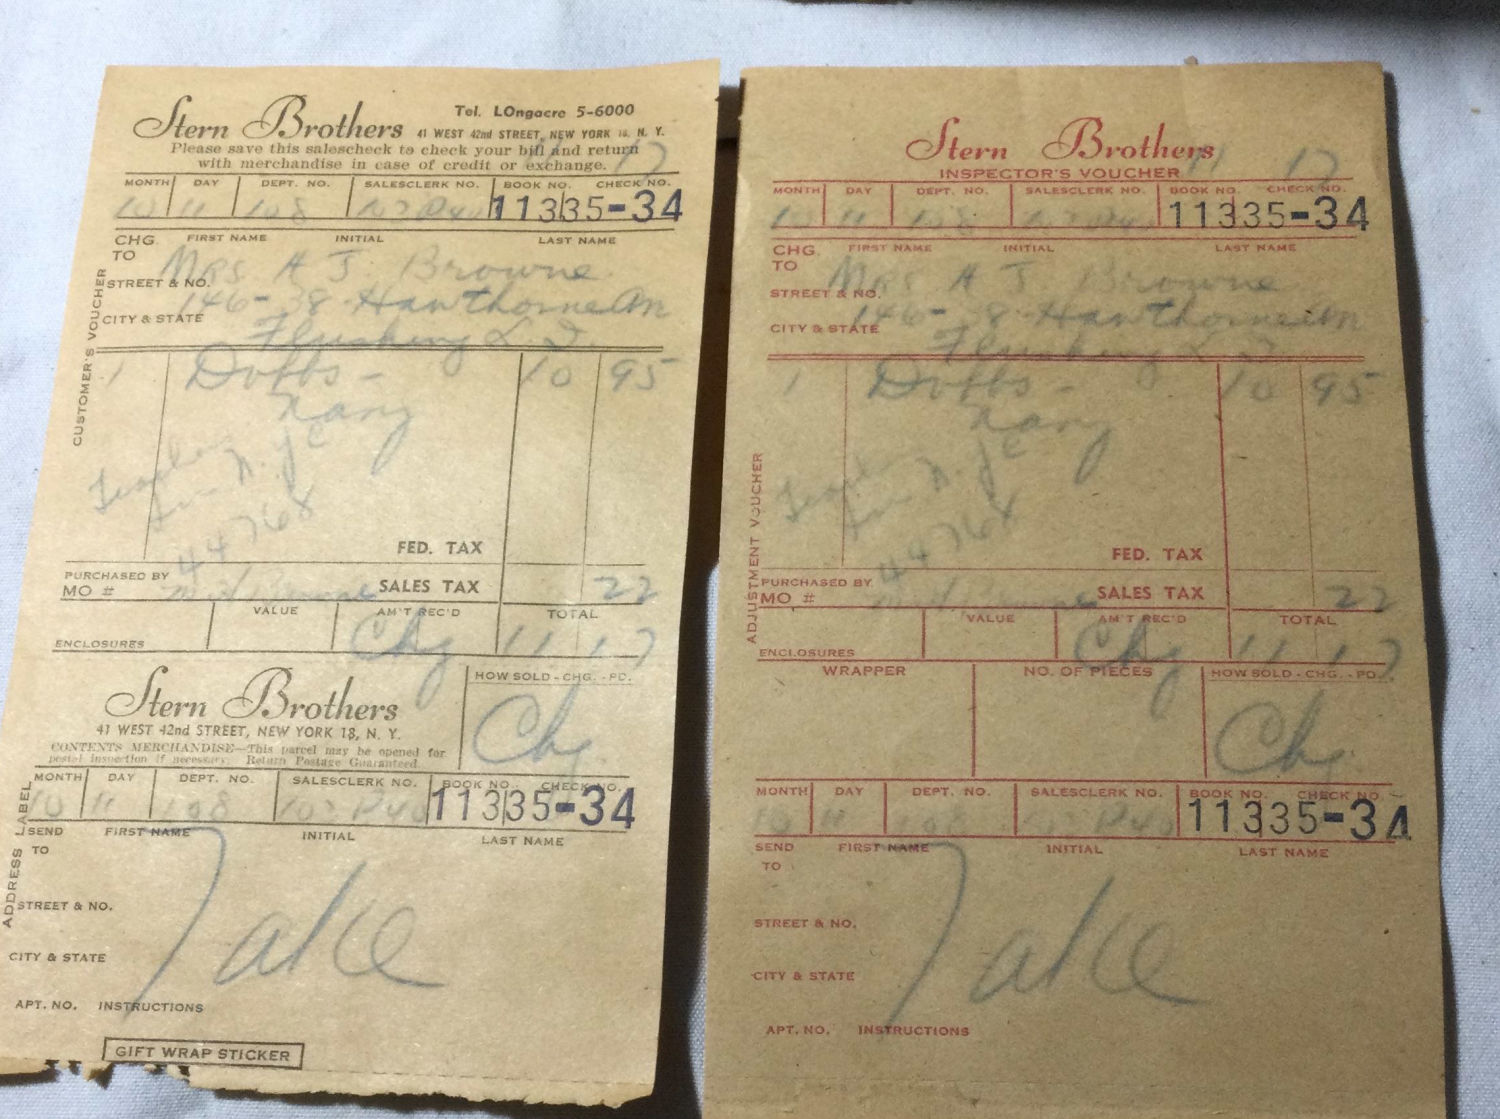 Stern Brothers
Tel. LOngacre 5-6000
41 WEST 42nd STREET, NEW YORK 18, N. Y.
Please save this salescheck to check your bill and return
with merchandise in case of credit or exchange.
11 17
MONTH DAY DEPT. NO. SALESCLERK NO. BOOK NO. CHECK NO.
10 11 108 11335-34
CHG. TO FIRST NAME INITIAL LAST NAME
Mrs A J Browne
STREET & NO.
146-38 Hawthorne
CITY & STATE
Flushing L. I.
CUSTOMER'S VOUCHER
1 Dobbs - 10 95
Navy
44768
FED. TAX
PURCHASED BY
MO #
SALES TAX 22
ENCLOSURES VALUE AM'T REC'D TOTAL
Chg 11 17
Stern Brothers
41 WEST 42nd STREET, NEW YORK 18, N. Y.
CONTENTS MERCHANDISE—This parcel may be opened for
postal inspection if necessary. Return Postage Guaranteed.
HOW SOLD - CHG. - PD.
Chg
MONTH DAY DEPT. NO. SALESCLERK NO. BOOK NO. CHECK NO.
10 11 108 11335-34
ADDRESS LABEL
SEND TO FIRST NAME INITIAL LAST NAME
Take
STREET & NO.
CITY & STATE
APT. NO. INSTRUCTIONS
GIFT WRAP STICKER
Stern Brothers
11 17
INSPECTOR'S VOUCHER
MONTH DAY DEPT. NO. SALESCLERK NO. BOOK NO. CHECK NO.
10 11 108 11335-34
CHG. TO FIRST NAME INITIAL LAST NAME
Mrs A J Browne
STREET & NO.
146-38 Hawthorne
CITY & STATE
Flushing L. I.
ADJUSTMENT VOUCHER
1 Dobbs - 10 95
Navy
44768
FED. TAX
PURCHASED BY
MO #
SALES TAX 22
ENCLOSURES VALUE AM'T REC'D TOTAL
Chg 11 17
WRAPPER NO. OF PIECES HOW SOLD - CHG. - PD.
Chg
MONTH DAY DEPT. NO. SALESCLERK NO. BOOK NO. CHECK NO.
10 11 108 11335-34
SEND TO FIRST NAME INITIAL LAST NAME
Take
STREET & NO.
CITY & STATE
APT. NO. INSTRUCTIONS